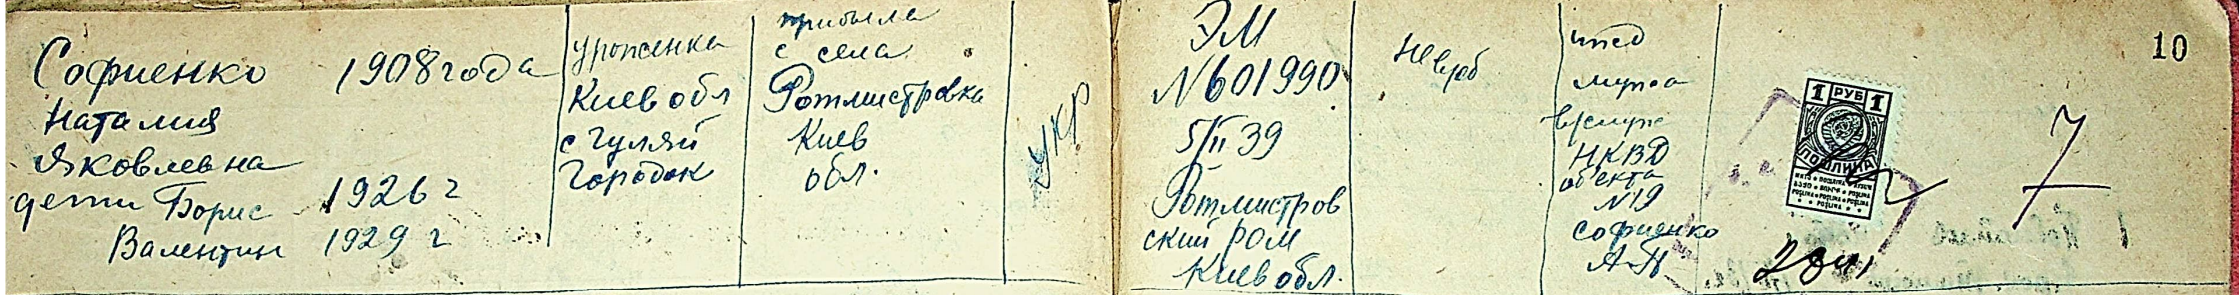 Софиенко 1908 года
Наталия
Яковлевна
дети Борис 1926 г
Валентин 1929 г
уроженка
Киев обл
с Гуляй
Городок
прибыла
с села
Ротмистровка
Киев
обл.
УКР
ЭМ
N 601990
5/II 39
Ротмистров
ский РОМ
Киев обл.
ижд
мужа
НКВД
объекта
N 19
Софиенко
А П
10
1 РУБ 1
ПОШЛИНА
7